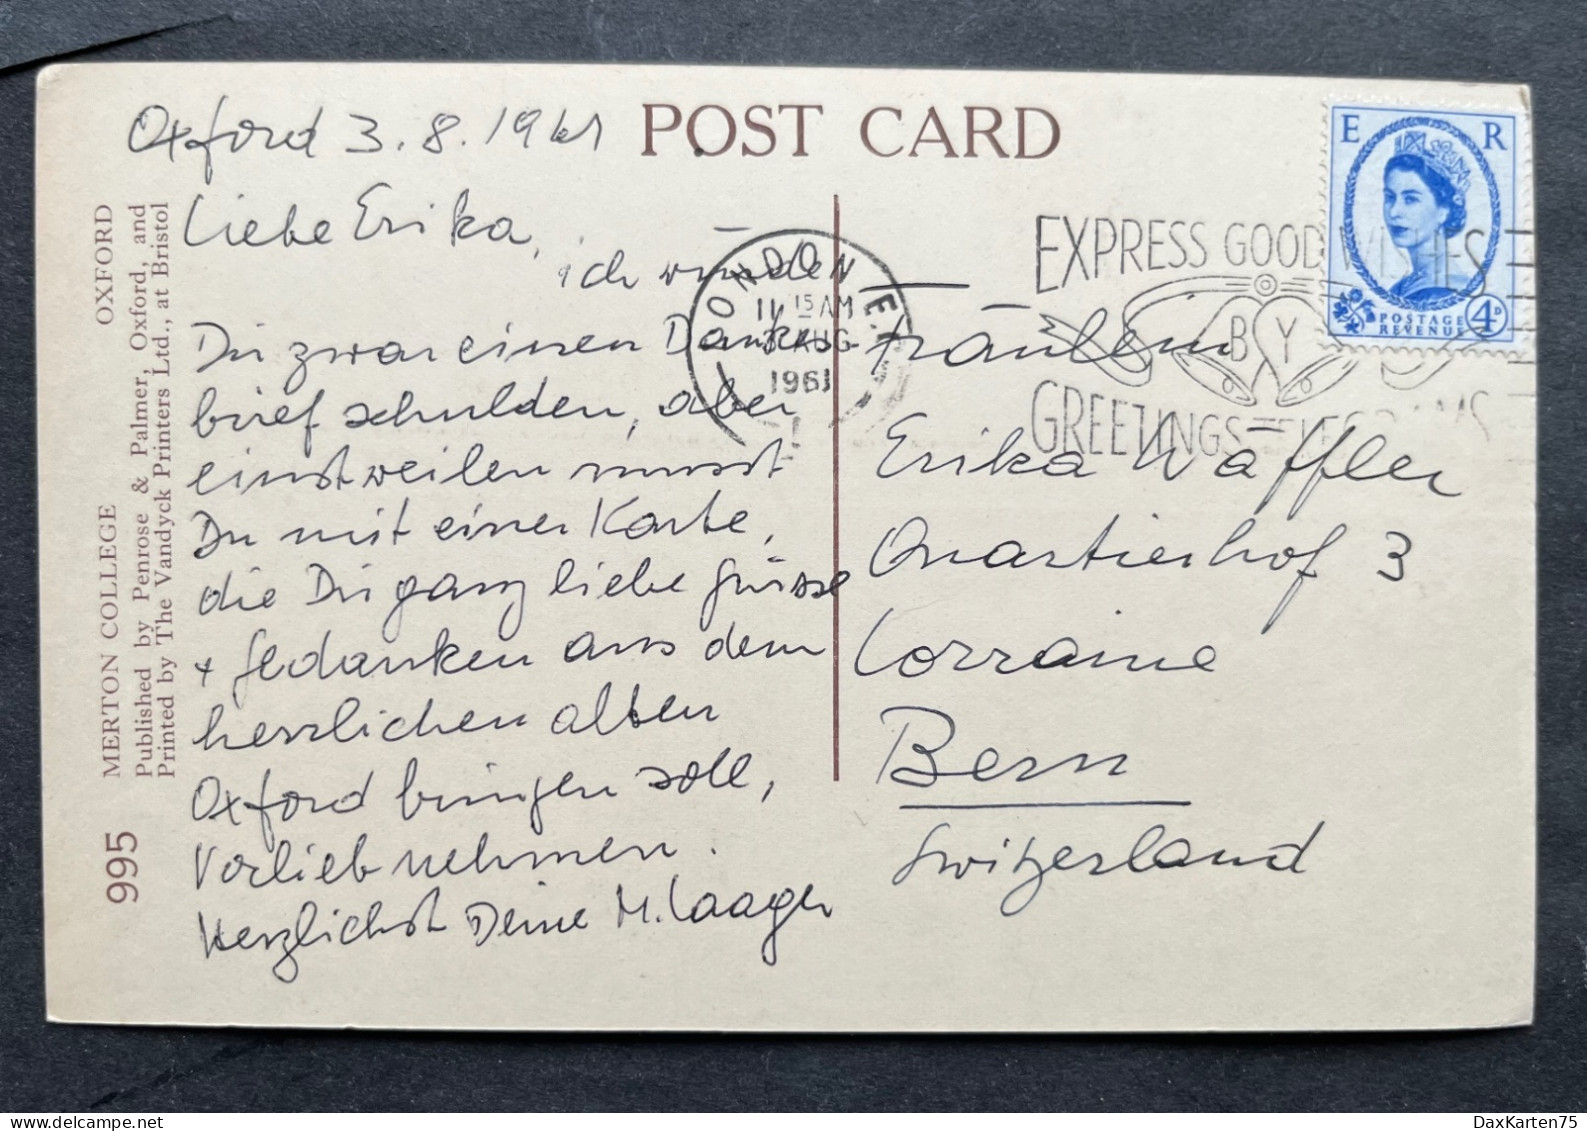 POST CARD
Oxford 3.8.1961
Liebe Erika,
ich würde
Dir zwar einen Dankes-
brief schulden, aber
einstweilen musst
Du mit einer Karte,
die Dir ganz liebe Grüsse
+ Gedanken aus dem
herrlichen alten
Oxford bringen soll,
Vorlieb nehmen.
Herzlichst Deine M. Laager
Fräulein
Erika Wäffler
Quartierhof 3
Lorraine
Bern
Switzerland
E R
POSTAGE
REVENUE
4D
LONDON E.
11 15 AM
3 AUG
1961
EXPRESS GOOD WISHES
BY
GREETINGS TELEGRAMS
MERTON COLLEGE OXFORD
Published by Penrose & Palmer, Oxford, and
Printed by The Vandyck Printers Ltd., at Bristol
995
DaxKarten75